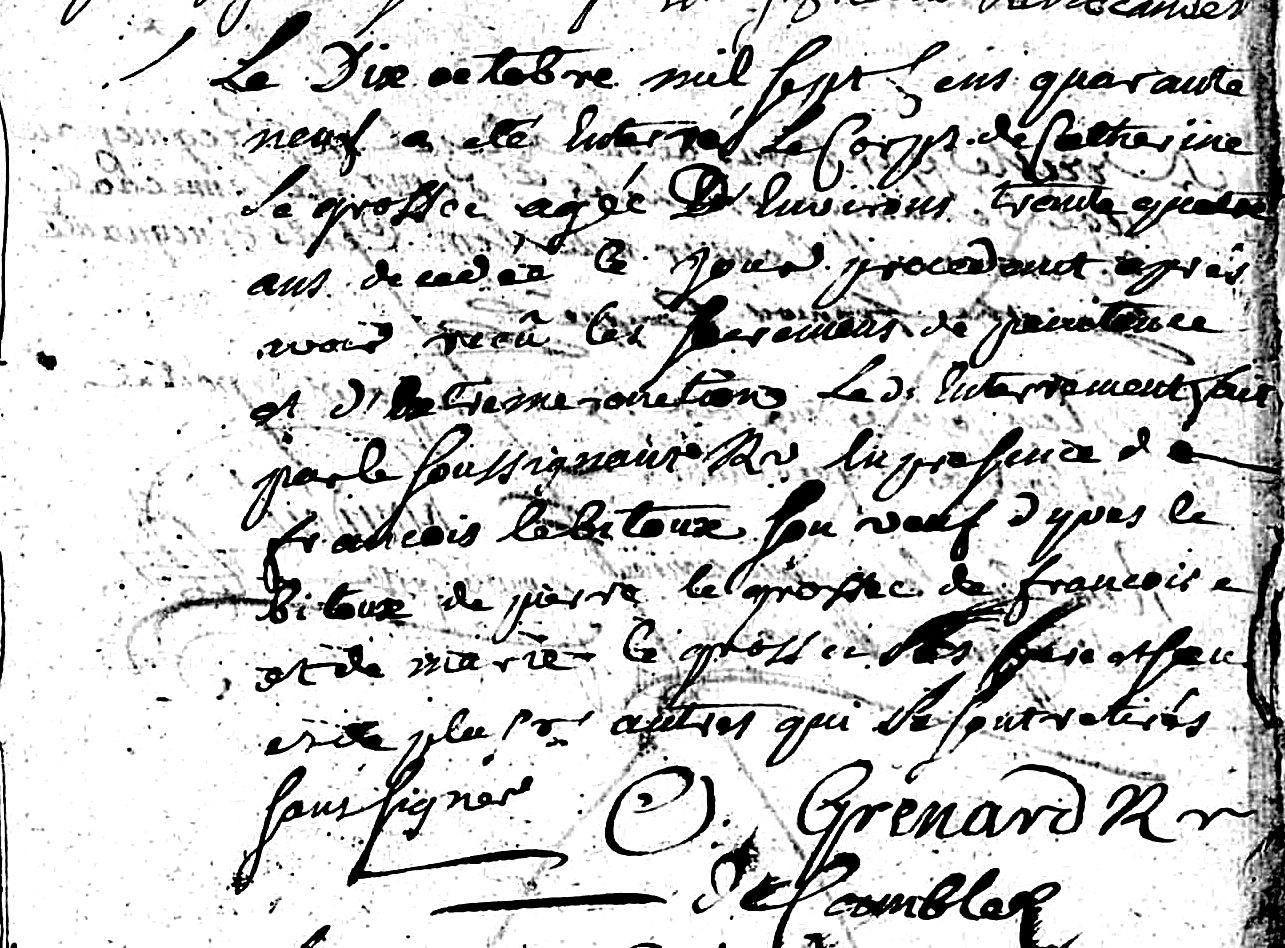 Le Dix octobre mil sept Cens quarante
neuf a eté Interrés Le Corps de Catherine
Le grossec agée D'Environs trente quatre
ans decedée le jour procedent apres
avoir recû les sacremens de penitence
et d'Extreme onction Led. Interrement fait
par le soussignant Rr En presence de
francois le bitoux son veuf d'yves le
Bitoux de pierre le grossec de francoise
et de marie le grossec frere et soeur
autres qui se sont retirés
sans signer O. Grenard Rr
de Ccombles